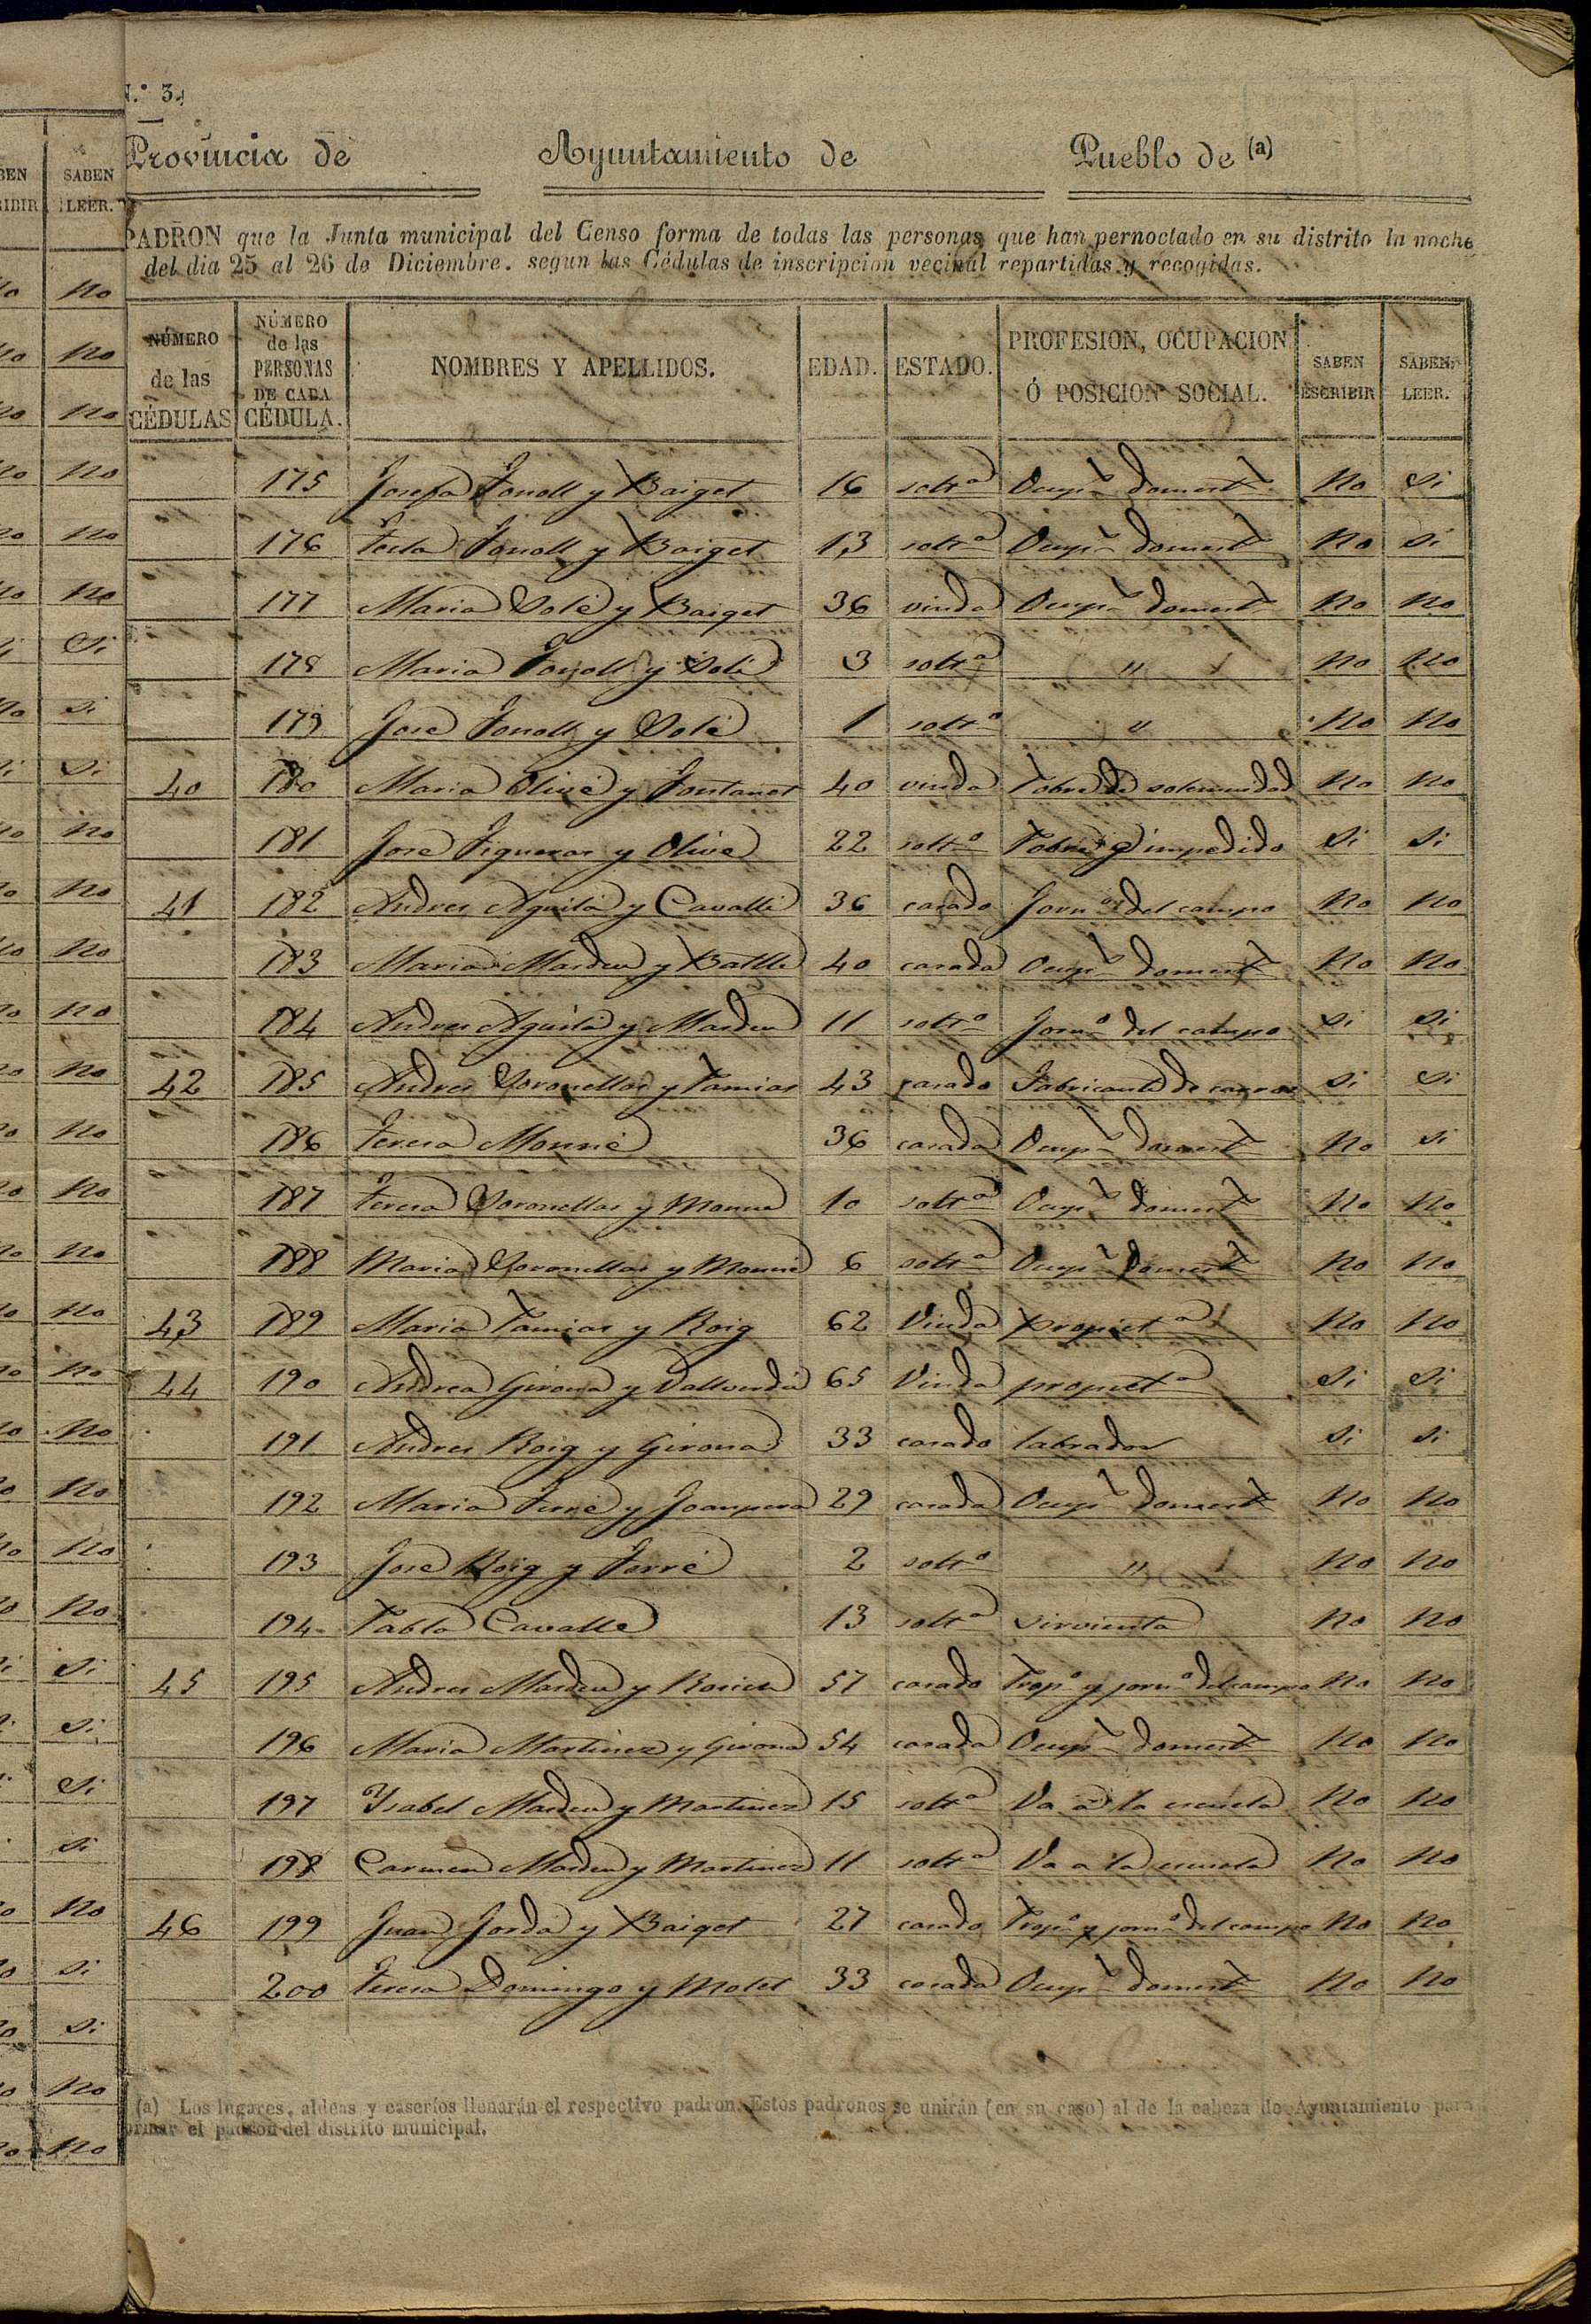 N.º 3.
Provincia de Ayuntamiento de Pueblo de (a)
PADRON que la Junta municipal del Censo forma de todas las personas que han pernoctado en su distrito la noche
del dia 25 al 26 de Diciembre, segun las Cédulas de inscripcion vecinal repartidas y recogidas.
NÚMERO de las CÉDULAS NÚMERO de las PERSONAS DE CADA CÉDULA. NOMBRES Y APELLIDOS. EDAD. ESTADO. PROFESION, OCUPACION Ó POSICION SOCIAL. SABEN ESCRIBIR SABEN LEER.
175 Josefa Fonoll y Baiget 16 soltª Ocupº domestª No Si
176 Tecla Fonoll y Baiget 13 soltª Ocupº domestª No Si
177 Maria Solé y Baiget 36 viuda Ocupº domestª No No
178 Maria Fonoll y Solé 3 soltª " No No
179 José Fonoll y Solé 1 soltº " No No
40 180 Maria Olivé y Fontanet 40 viuda Pobre de solemnidad No No
181 José Figueras y Olivé 22 soltº Pobre é impedido Si Si
41 182 Andres Aguilá y Cavallé 36 casado Jornº del campo No No
183 Maria Masdeu y Batlle 40 casada Ocupº domestª No No
184 Andres Aguilá y Masdeu 11 soltº Jornº del campo Si Si
42 185 Andres Soronellas y Tamias 43 casado Fabricante de carros Si Si
186 Teresa Monné 36 casada Ocupº domestª No Si
187 Teresa Soronellas y Monné 10 soltª Ocupº domestª No No
188 Maria Soronellas y Monné 6 soltª Ocupº domestª No No
43 189 Maria Tamias y Roig 62 Viuda propietª No No
44 190 Andrea Girona y Vallverdú 65 Viuda propietª Si Si
191 Andres Roig y Girona 33 casado labrador Si Si
192 Maria Ferré y Joanpera 29 casada Ocupº domestª No No
193 José Roig y Ferré 2 soltº " No No
194 Pabla Cavalle 13 soltª sirvienta No No
45 195 Andres Masdeu y 57 casado Propº y jornº del campo No No
196 Maria Martinez y Girona 54 casada Ocupº domestª No No
197 Ysabel Masdeu y Martinez 15 soltª Va a la escuela No No
198 Carmen Masdeu y Martinez 11 soltª Va a la escuela No No
46 199 Juan Jordá y Baiget 27 casado Propº y jornº del campo No No
200 Teresa Domingo y Molet 33 casada Ocupº domestª No No
(a) Los lugares, aldeas y caseríos llenarán el respectivo padron. Estos padrones se unirán (en su caso) al de la cabeza de Ayuntamiento para
formar el padron del distrito municipal.